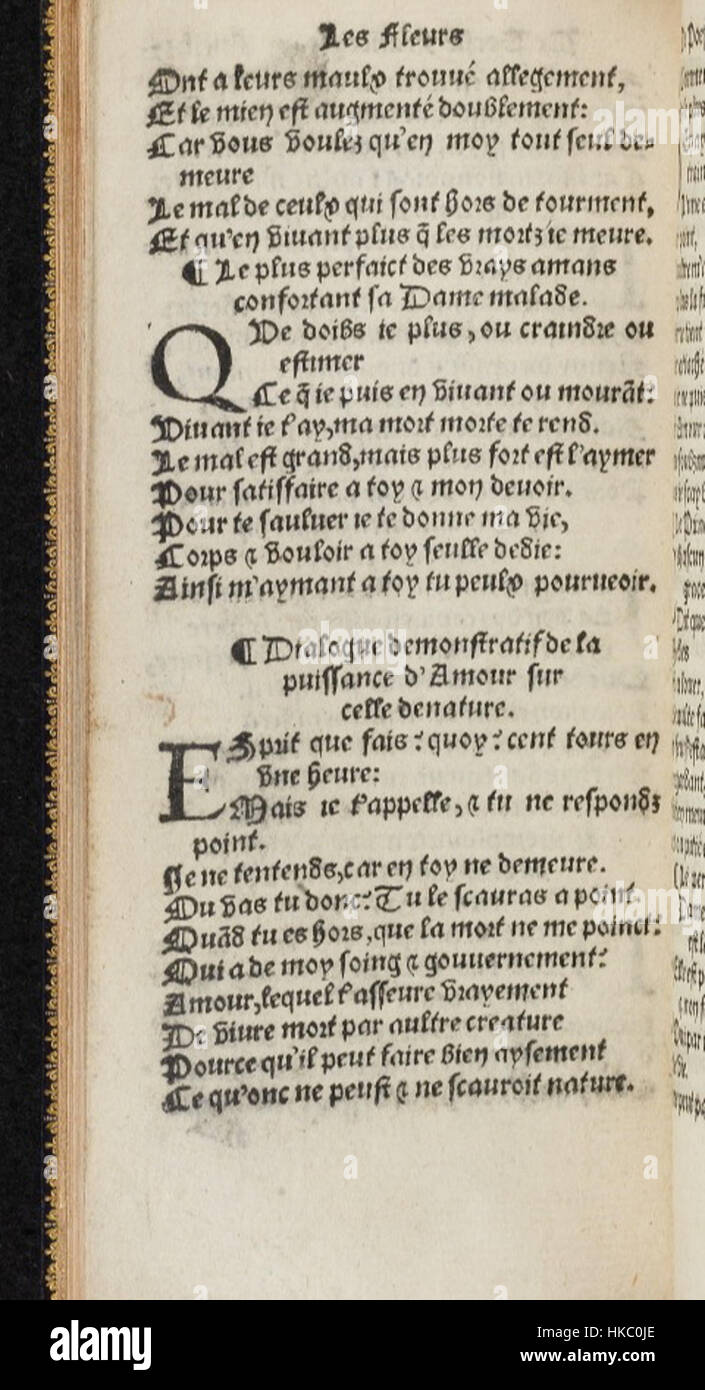 Les Fleurs
Ont a leurs maulx trouué allegement,
Et le mien est augmenté doublement:
Car vous voulez qu'en moy tout seul de-
meure
Le mal de ceulx qui sont hors de tourment,
Et qu'en viuant plus q̃ les mortz ie meure.
¶ Le plus perfaict des vrays amans
confortant sa Dame malade.
QVe doibs ie plus, ou craindre ou
estimer
Ce q̃ ie puis en viuant ou mourãt:
Viuant ie t'ay, ma mort morte te rend.
Le mal est grand, mais plus fort est l'aymer
Pour satisfaire a toy & mon deuoir.
Pour te sauluer ie te donne ma vie,
Corps & vouloir a toy seulle dedie:
Ainsi m'aymant a toy tu peulx pourueoir.
¶ Dialogue demonstratif de la
puissance d'Amour sur
celle denature.
ESprit que fais? quoy? cent tours en
vne heure:
Mais ie t'appelle, & tu ne respondz
point.
Je ne tentends, car en toy ne demeure.
Ou vas tu donc? Tu le scauras a point
Quãd tu es hors, que la mort ne me poinct?
Qui a de moy soing & gouuernement?
Amour, lequel t'asseure vrayement
De viure mort par aultre creature
Pource qu'il peut faire bien aysement
Ce qu'onc ne peust & ne scauroit nature.
alamy
Image ID: HKC0JE
www.alamy.com